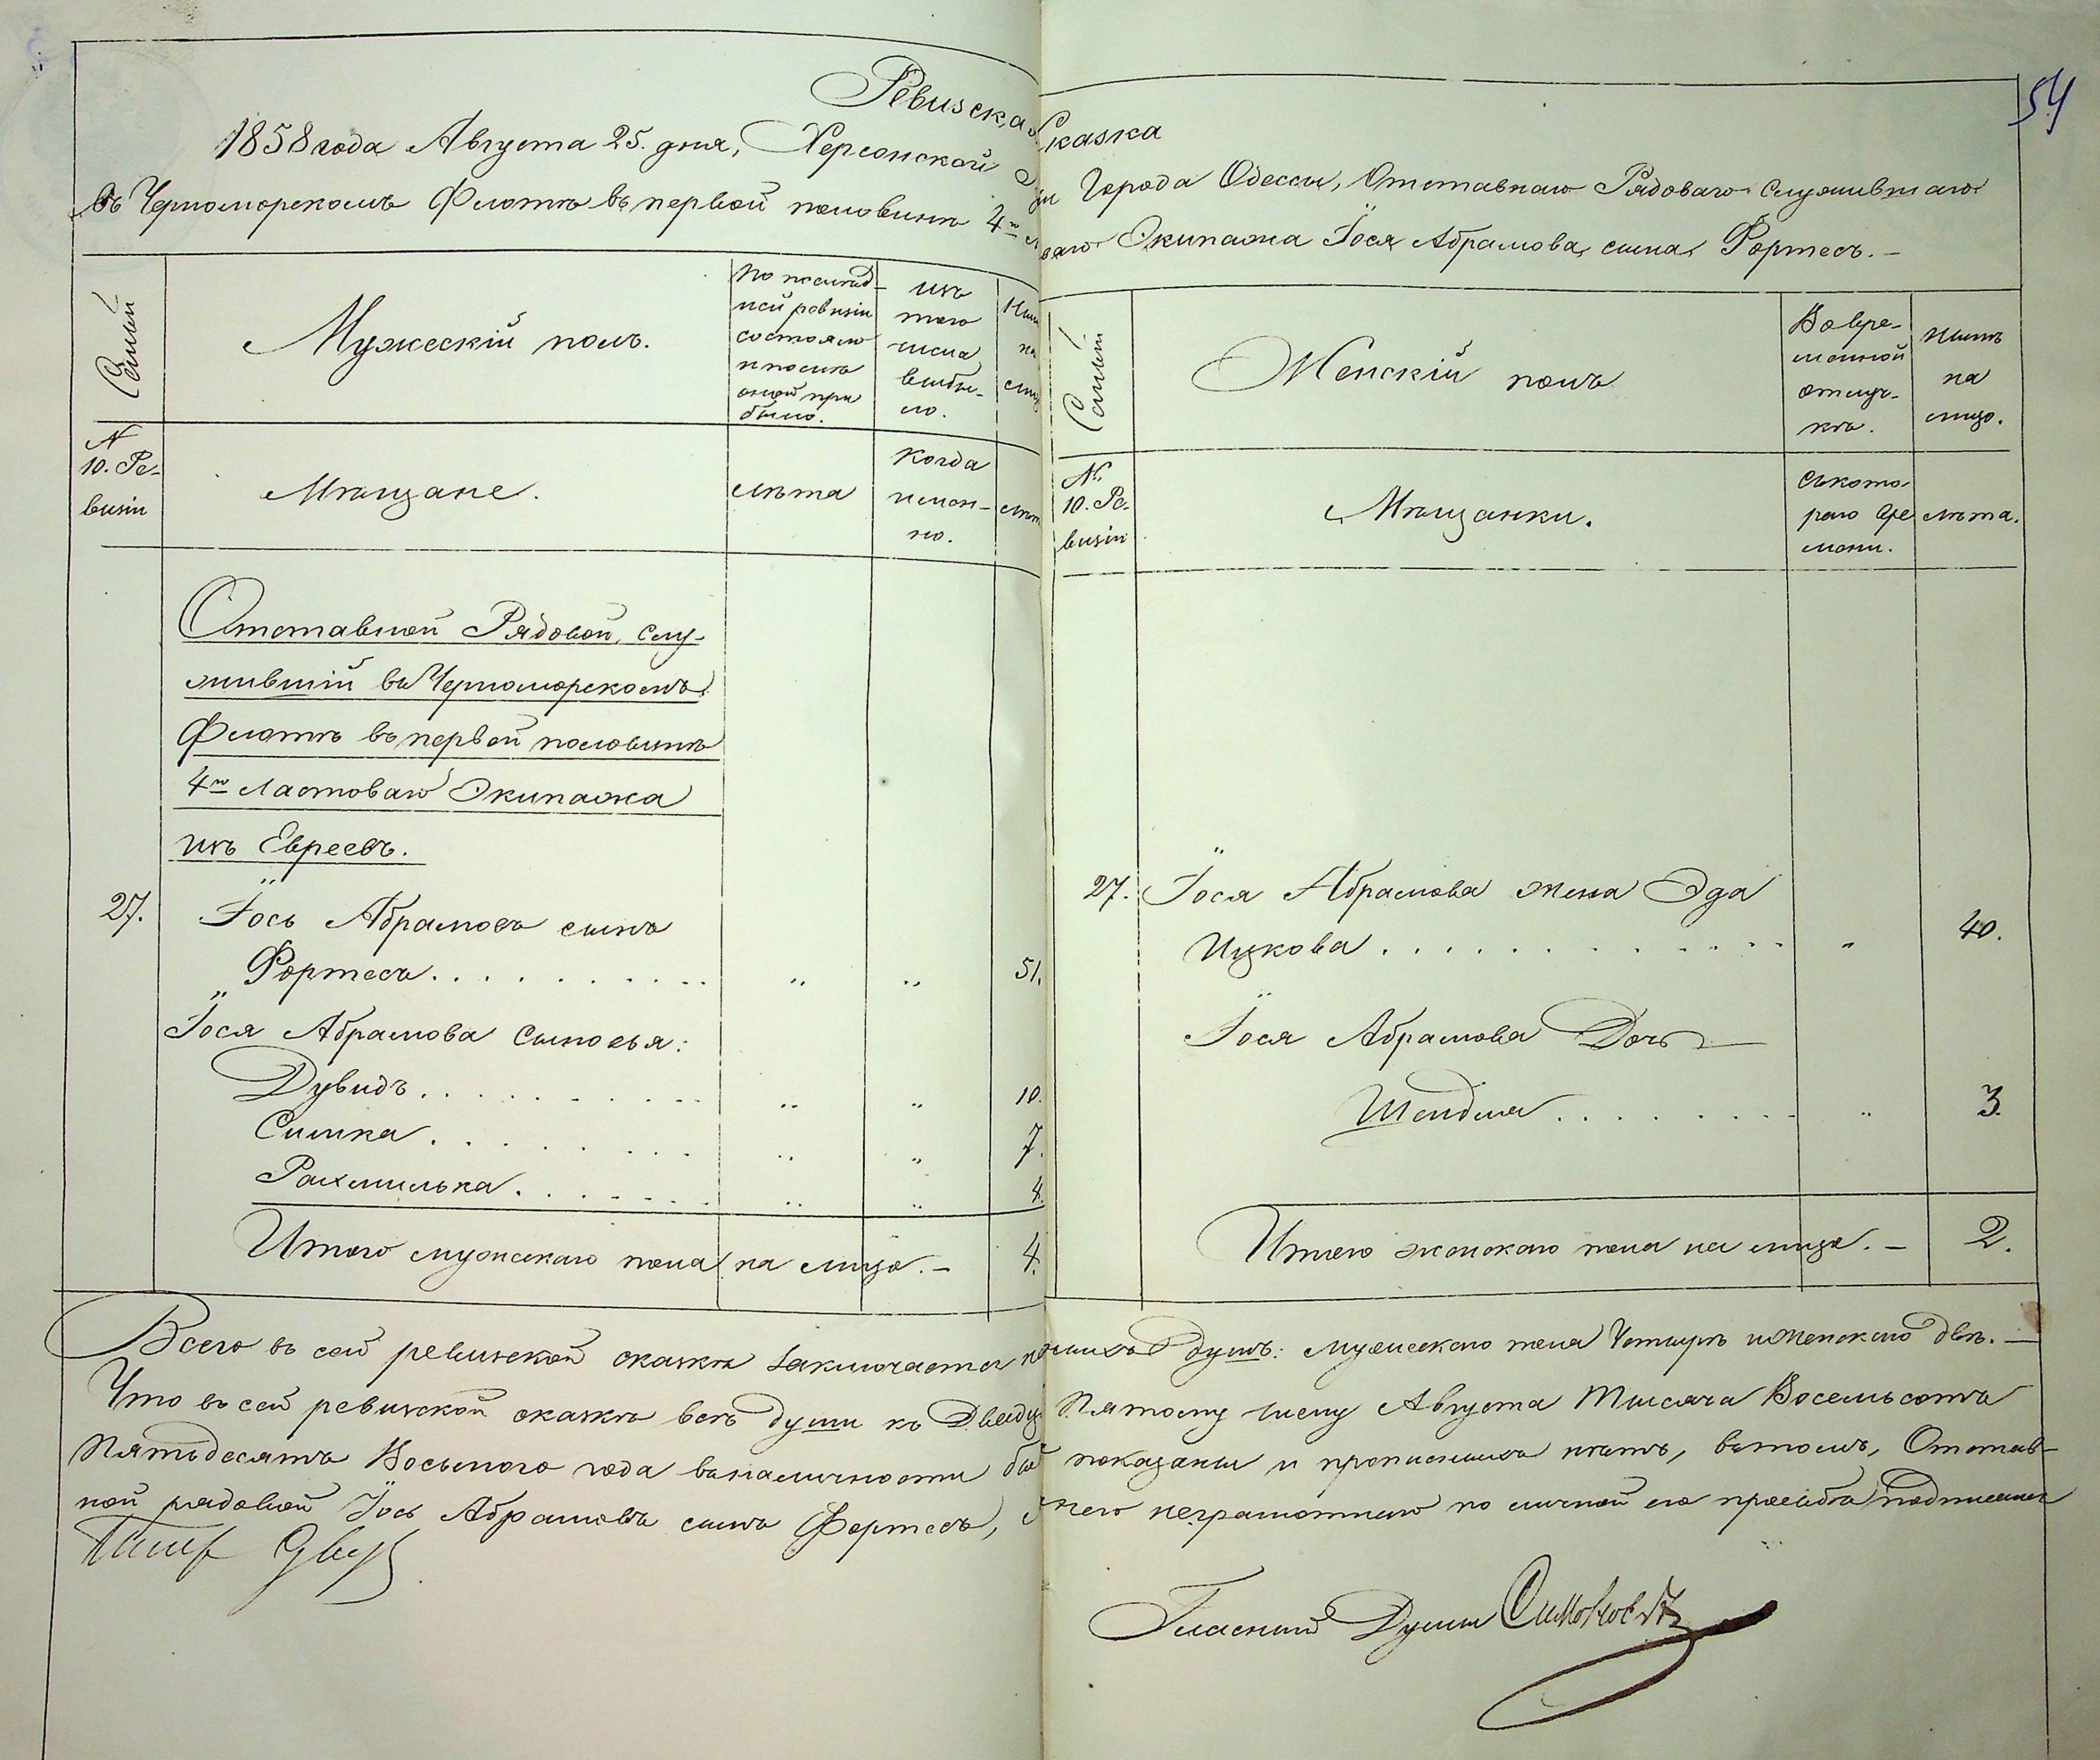 54
Ревизская Сказка
1858 года Августа 25. дня, Херсонской Города Одессы, Отставнаго Рядоваго служившаго
въ Черноморскомъ Флотѣ въ первой половинѣ 4го Экипажа Іося Абрамова сына Фортесъ. —
Семьи
Мужескій полъ.
По послѣд-
ней ревизіи
состояло
и послѣ
оной при
было.
изъ
того
числа
выбы-
ло.
Нынѣ
на
лицо
Семьи
Женскій полъ
Во вре-
менной
отлуч-
кѣ.
Нынѣ
на
лицо.
№
10. Ре-
визіи
Мѣщане.
лѣта
Когда
имен-
но.
лѣта
№.
10. Ре-
визіи
Мѣщанки.
Съ кото-
раго вре
мени.
лѣта.
Отставной Рядовой, слу-
жившій въ Черноморскомъ
Флотѣ въ первой половинѣ
4го Ластоваго Экипажа
изъ Евреевъ.
27. Іось Абрамовъ сынъ
Фортесъ . . . . . . . . . „ „ 51.
Іося Абрамова Сыновья:
Дувидъ . . . . . . . . . „ „ 10.
Симка . . . . . . . . . „ „ 7.
Рахмилька . . . . . . . „ „ 4.
Итого мужескаго пола на лицо. — 4.
27. Іося Абрамова жена Эда
Ицкова . . . . . . . . . . . „ 40.
Іося Абрамова Дочь
Шендля . . . . . . . . „ 3.
Итого женскаго пола на лицо. — 2.
Всего въ сей ревизской сказкѣ заключается душъ: мужескаго пола Четыре и Женскаго двѣ. —
Что въ сей ревизской сказкѣ всѣ души къ Двадца Пятому числу Августа Тысяча Восемьсотъ
Пятьдесятъ Восьмого года въ наличности показаны и прописныхъ нѣтъ, въ томъ, Отстав-
ной рядовой Іось Абрамовъ сынъ Фортесъ, а неграмотнаго по личной его просьбѣ подписался
Гласный Думы Симоновъ